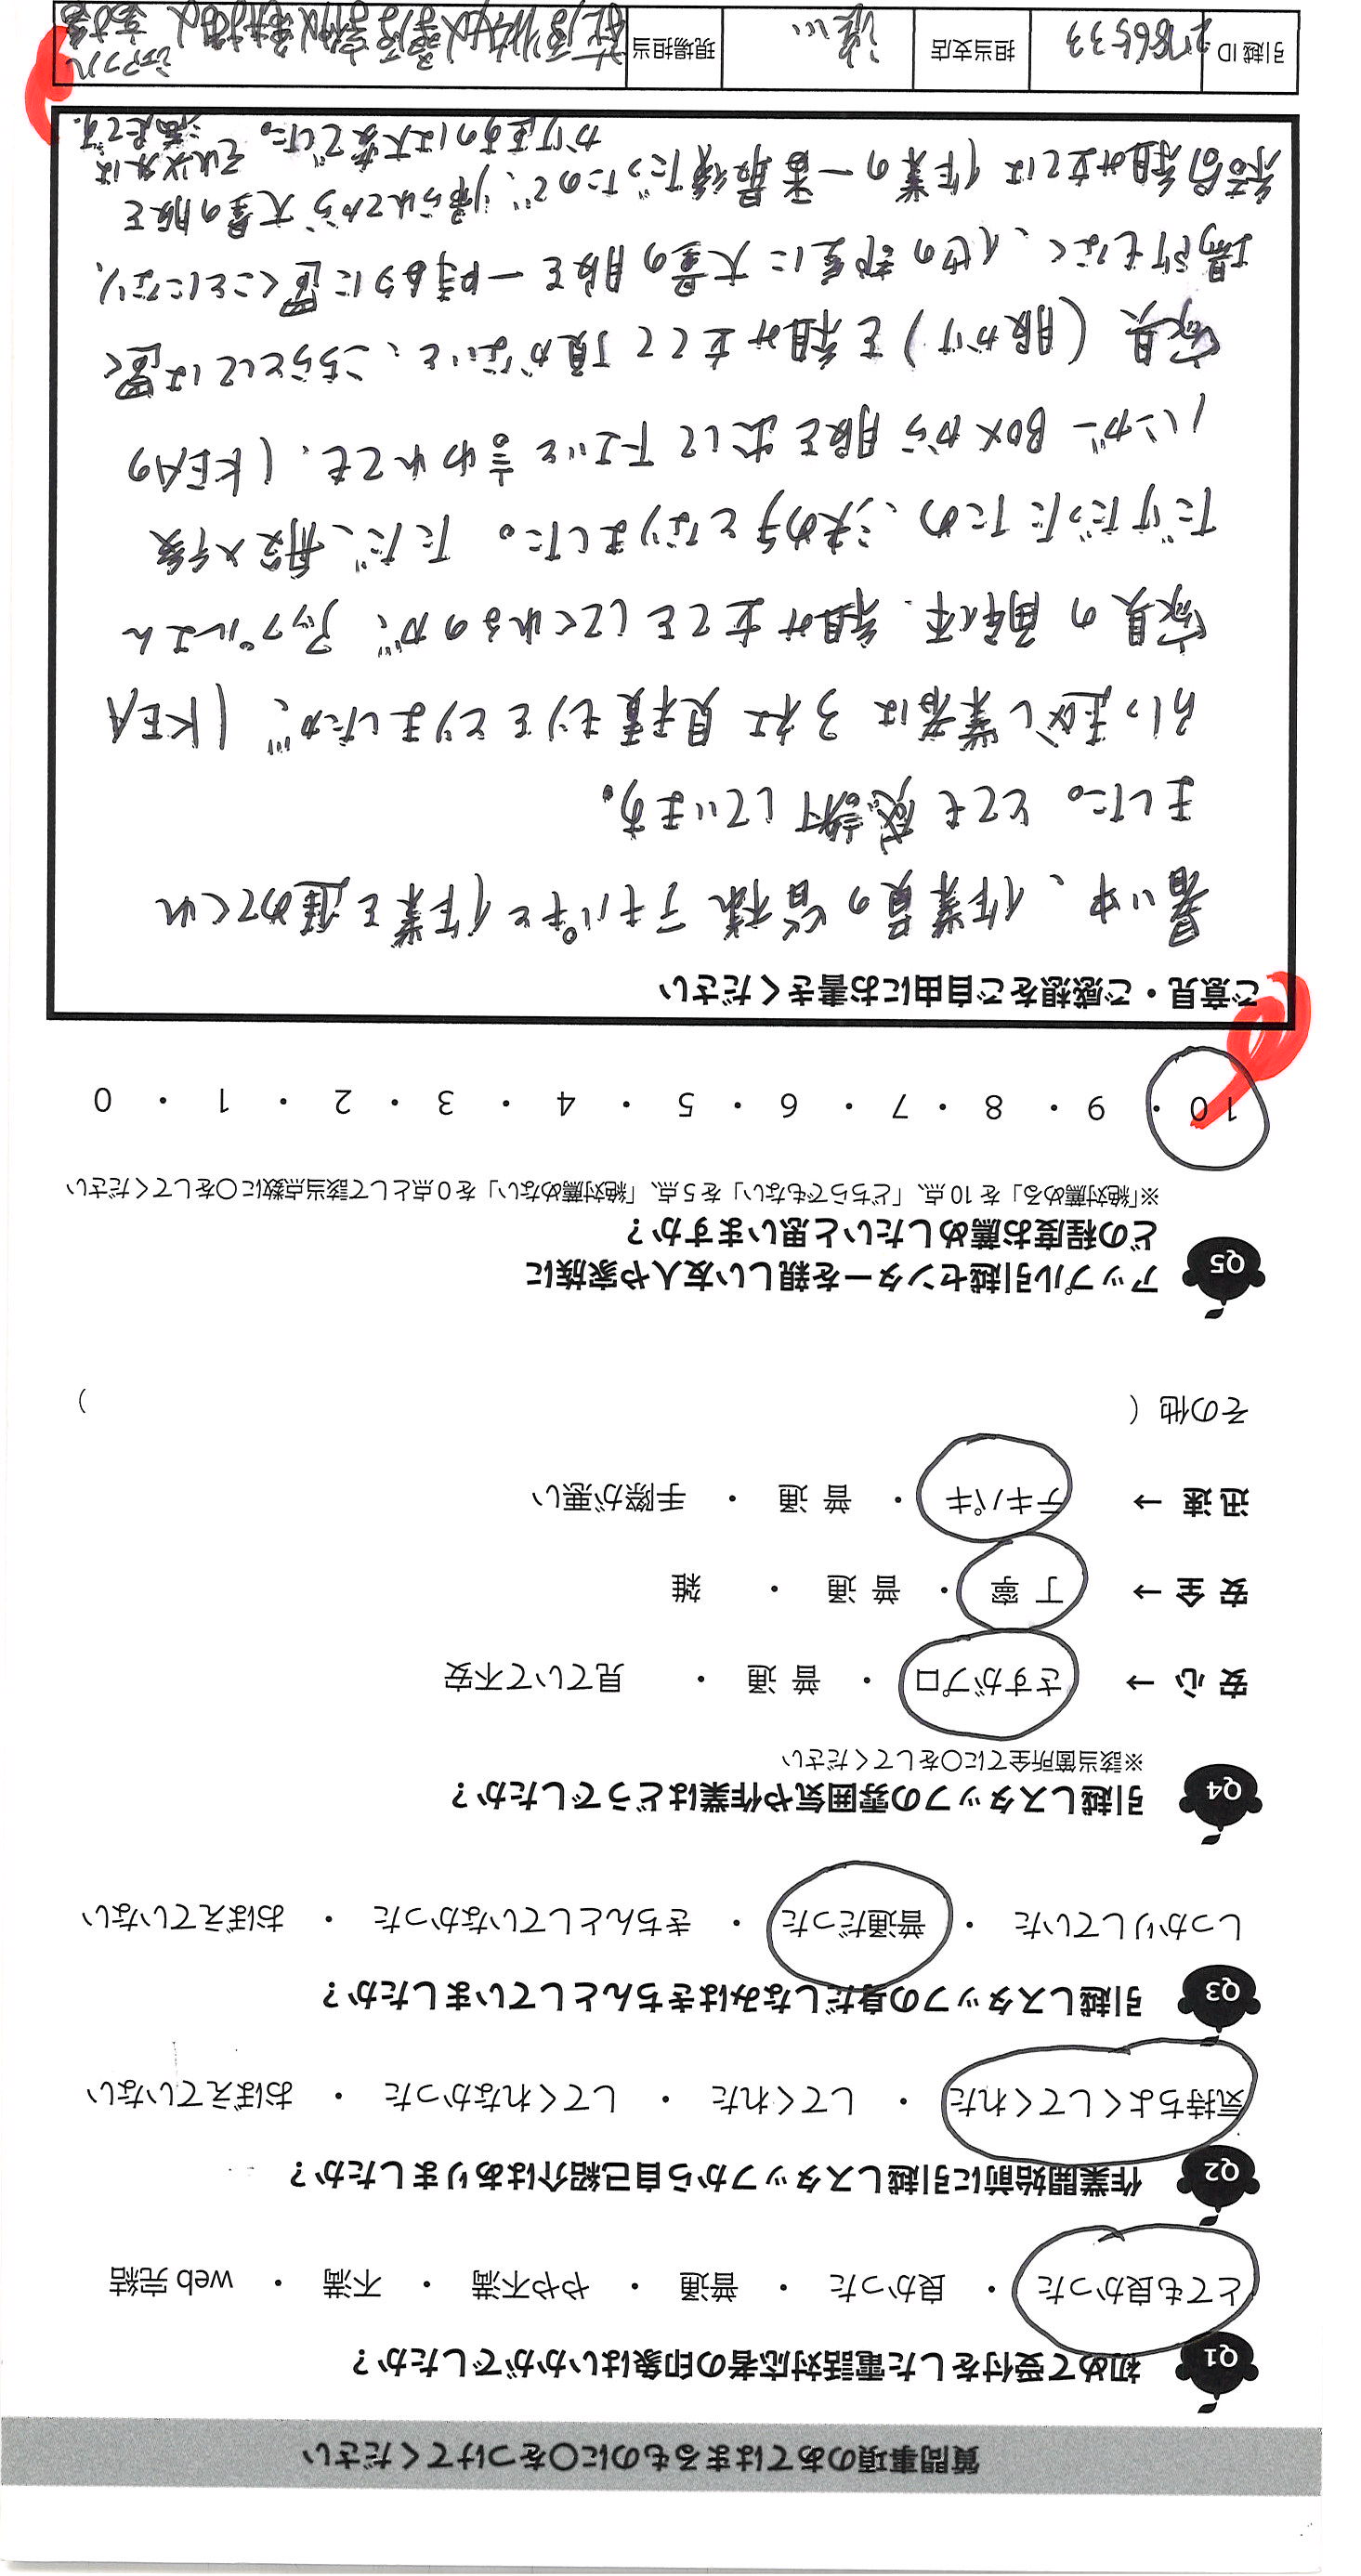 質問事項のあてはまるものに○をつけてください
Q1 初めて受付をした電話対応者の印象はいかがでしたか?
とても良かった ・ 良かった ・ 普通 ・ やや不満 ・ 不満 ・ web 完結
Q2 作業開始前に引越しスタッフから自己紹介はありましたか?
気持ちよくしてくれた ・ してくれた ・ してくれなかった ・ おぼえていない
Q3 引越しスタッフの身だしなみはきちんとしていましたか?
しっかりしていた ・ 普通だった ・ きちんとしていなかった ・ おぼえていない
Q4 引越しスタッフの雰囲気や作業はどうでしたか?
※該当箇所全てに○をしてください
安 心 → さすがプロ ・ 普 通 ・ 見ていて不安
安 全 → 丁 寧 ・ 普 通 ・ 雑
迅 速 → テキパキ ・ 普 通 ・ 手際が悪い
その他 ( )
Q5 アップル引越センターを親しい友人や家族に
どの程度お薦めしたいと思いますか?
※「絶対薦める」を 10 点、「どちらでもない」を 5 点、「絶対薦めない」を 0 点として該当点数に○をしてください
10 ・ 9 ・ 8 ・ 7 ・ 6 ・ 5 ・ 4 ・ 3 ・ 2 ・ 1 ・ 0
ご意見・ご感想をご自由にお書きください
暑い中、作業員の皆様テキパキと作業を進めてくれ
ました。とても感謝しています。
引っ越し業者は3社見積もりをとりましたが、IKEA
家具の解体・組み立てをしてくれるのが、アップルさん
だけだったため、決め手となりました。ただ、搬入後
ハンガーBOXから服を出して下さいと言われても、IKEAの
家具(服かけ)を組み立てて頂かないと、こちらとしては置く
場所もなく、他の部屋に大量の服を一時的に置くことになり、
結局組み立ては作業の一番最後だったので、帰られてから大量の服を
かけ直すのは大変でした。それ以外は
満足です。
引越 ID 2786533 担当支店 現場担当